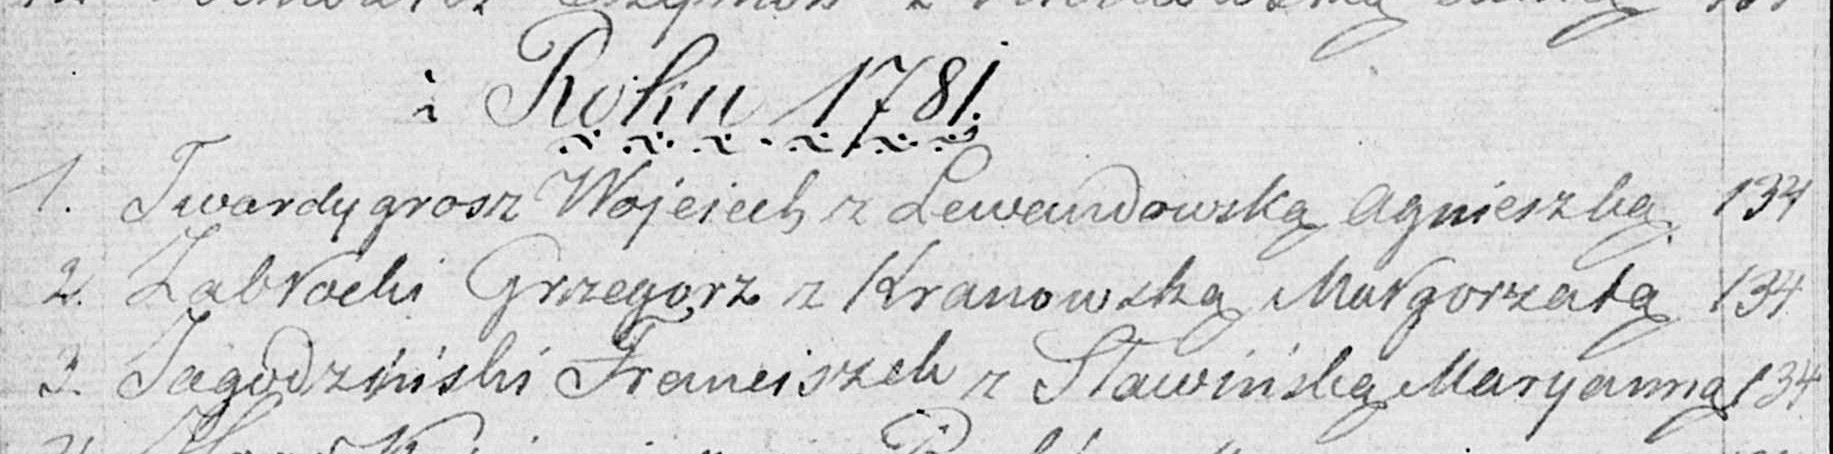 Roku 1781.
1. Twardygrosz Wojciech z Lewandowską Agnieszką 134
2. Zabłocki Grzegorz z Kranowską Małgorzatą 134
3. Jagodziński Franciszek z Sławińską Maryanną 134